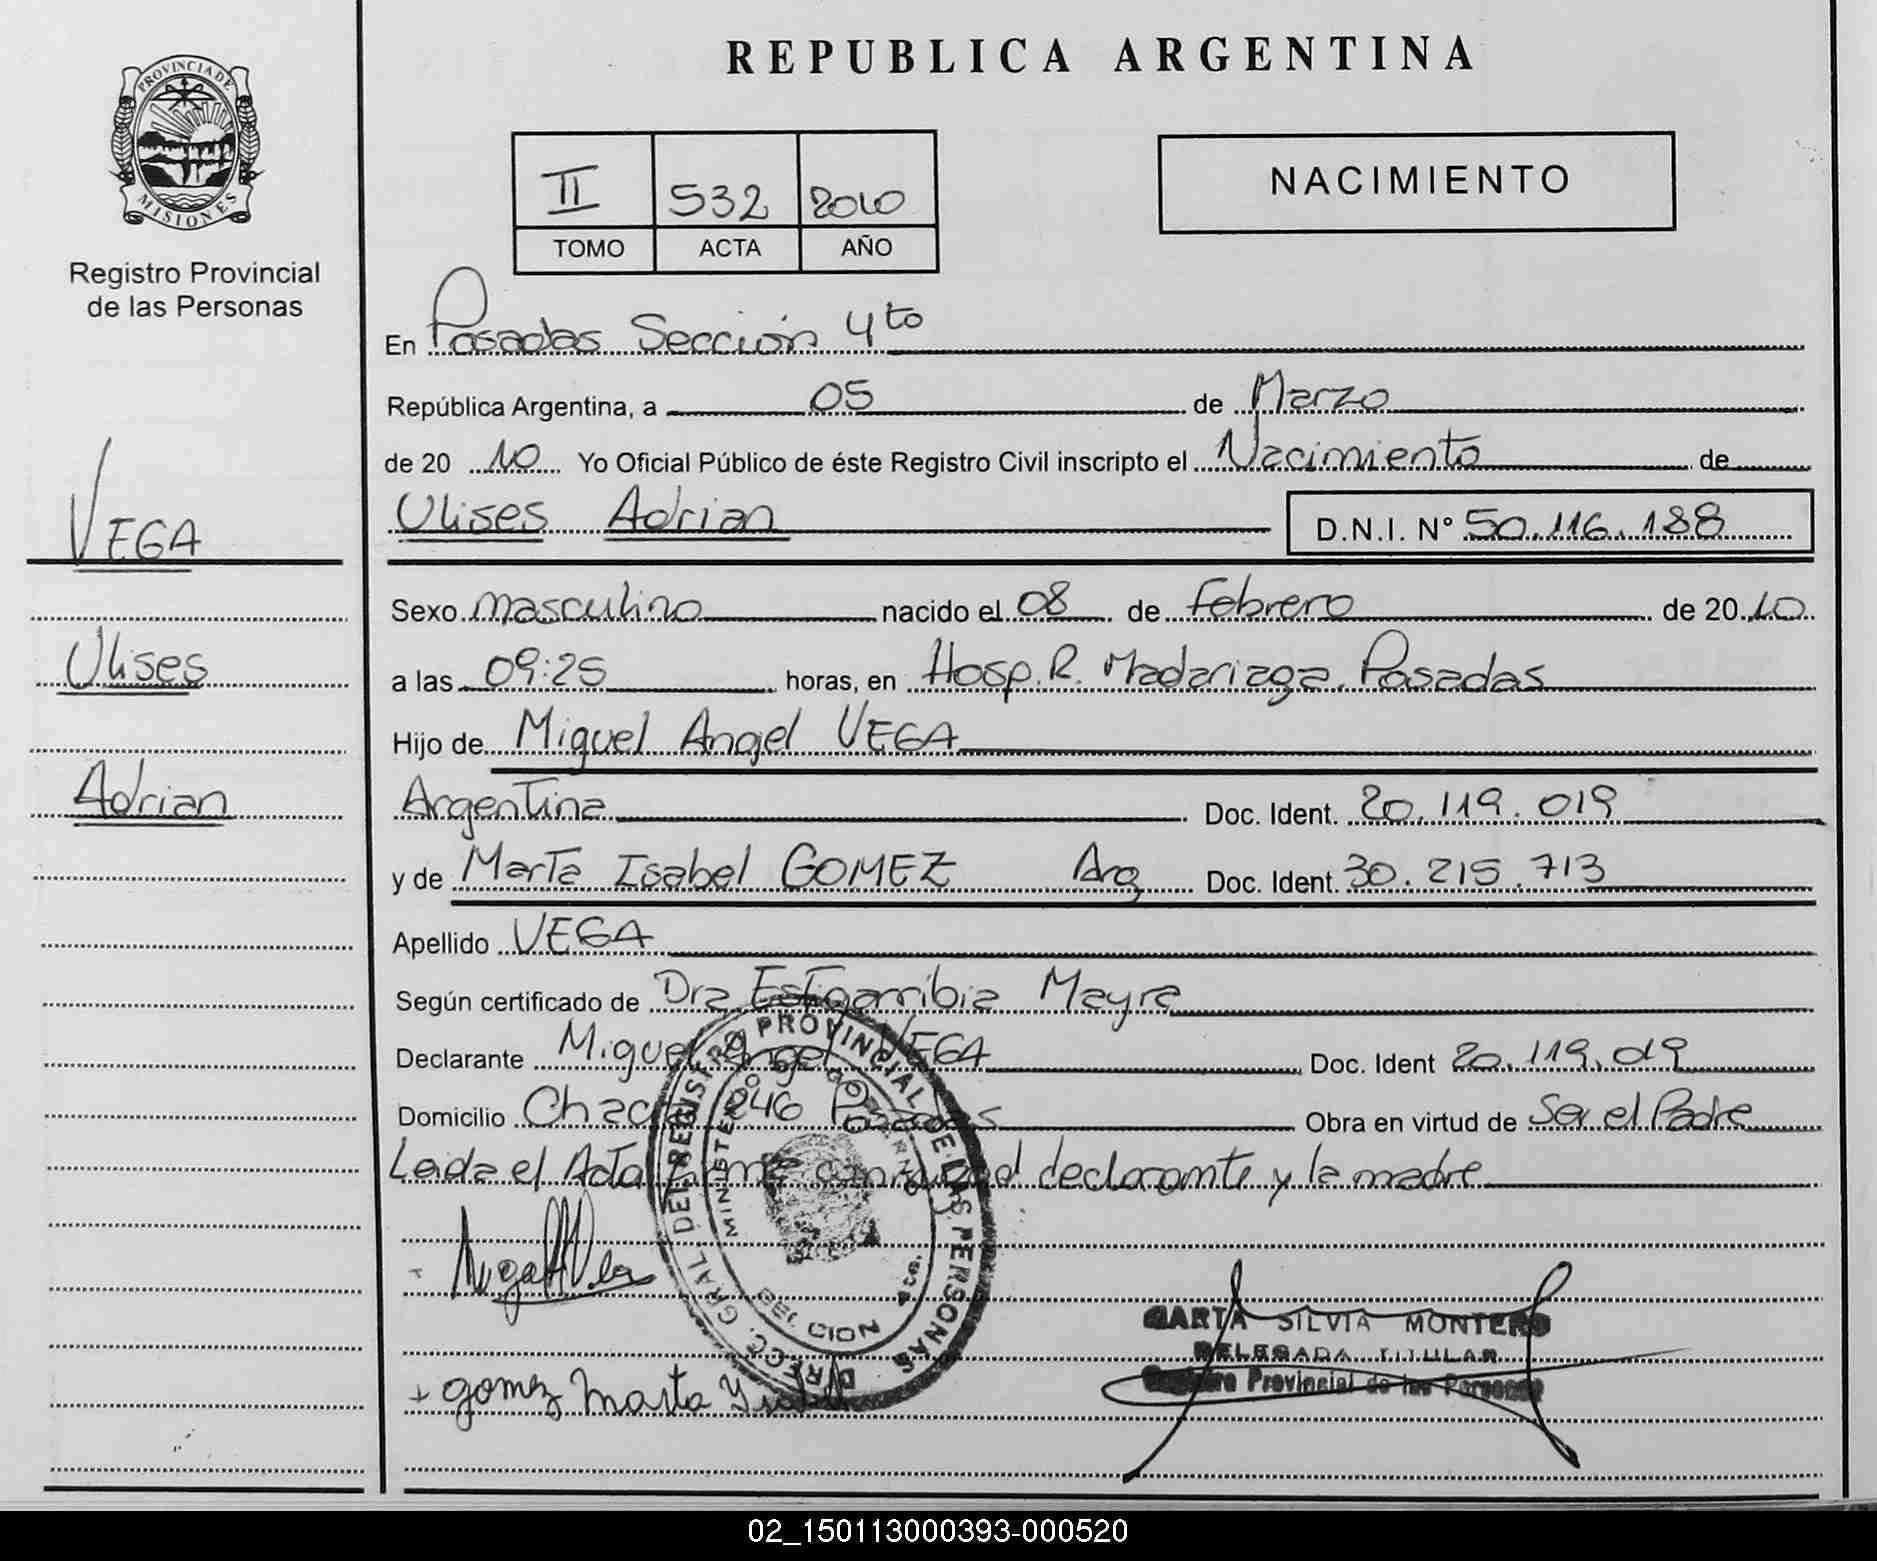 REPUBLICA ARGENTINA
PROVINCIA DE
MISIONES
Registro Provincial
de las Personas
II 532 2010
TOMO ACTA AÑO
NACIMIENTO
VEGA
Ulises
Adrian
En Posadas Sección 4to
República Argentina, a 05 de Marzo
de 20 10 Yo Oficial Público de éste Registro Civil inscripto el Nacimiento de
Ulises Adrian D.N.I. Nº 50.116.188
Sexo masculino nacido el 08 de febrero de 20 10
a las 09:25 horas, en Hosp. R. Madariaga. Posadas
Hijo de Miguel Angel VEGA
Argentina Doc. Ident. 20.119.019
y de Marta Isabel GOMEZ Arg Doc. Ident. 30.215.713
Apellido VEGA
Según certificado de Dra Mayra
Declarante Miguel Angel VEGA Doc. Ident 20.119.019
Domicilio 246 Posadas Obra en virtud de Ser el Padre
Leida el Acta declarante y la madre
DIRECC. GRAL DEL REGISTRO PROVINCIAL DE LAS PERSONAS
MINISTERIO DE GOBIERNO
gomez Marta Isabel
MARTA SILVIA MONTERO
DELEGADA TITULAR
Registro Provincial de las Personas
02_150113000393-000520